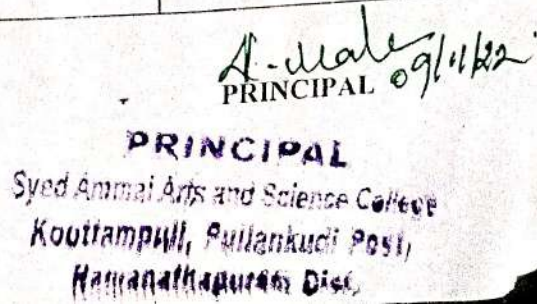 09/11/22
PRINCIPAL
PRINCIPAL
Syed Ammal Arts and Science College
Kouttampuli, Pullankudi Post,
Ramanathapuram Dist.